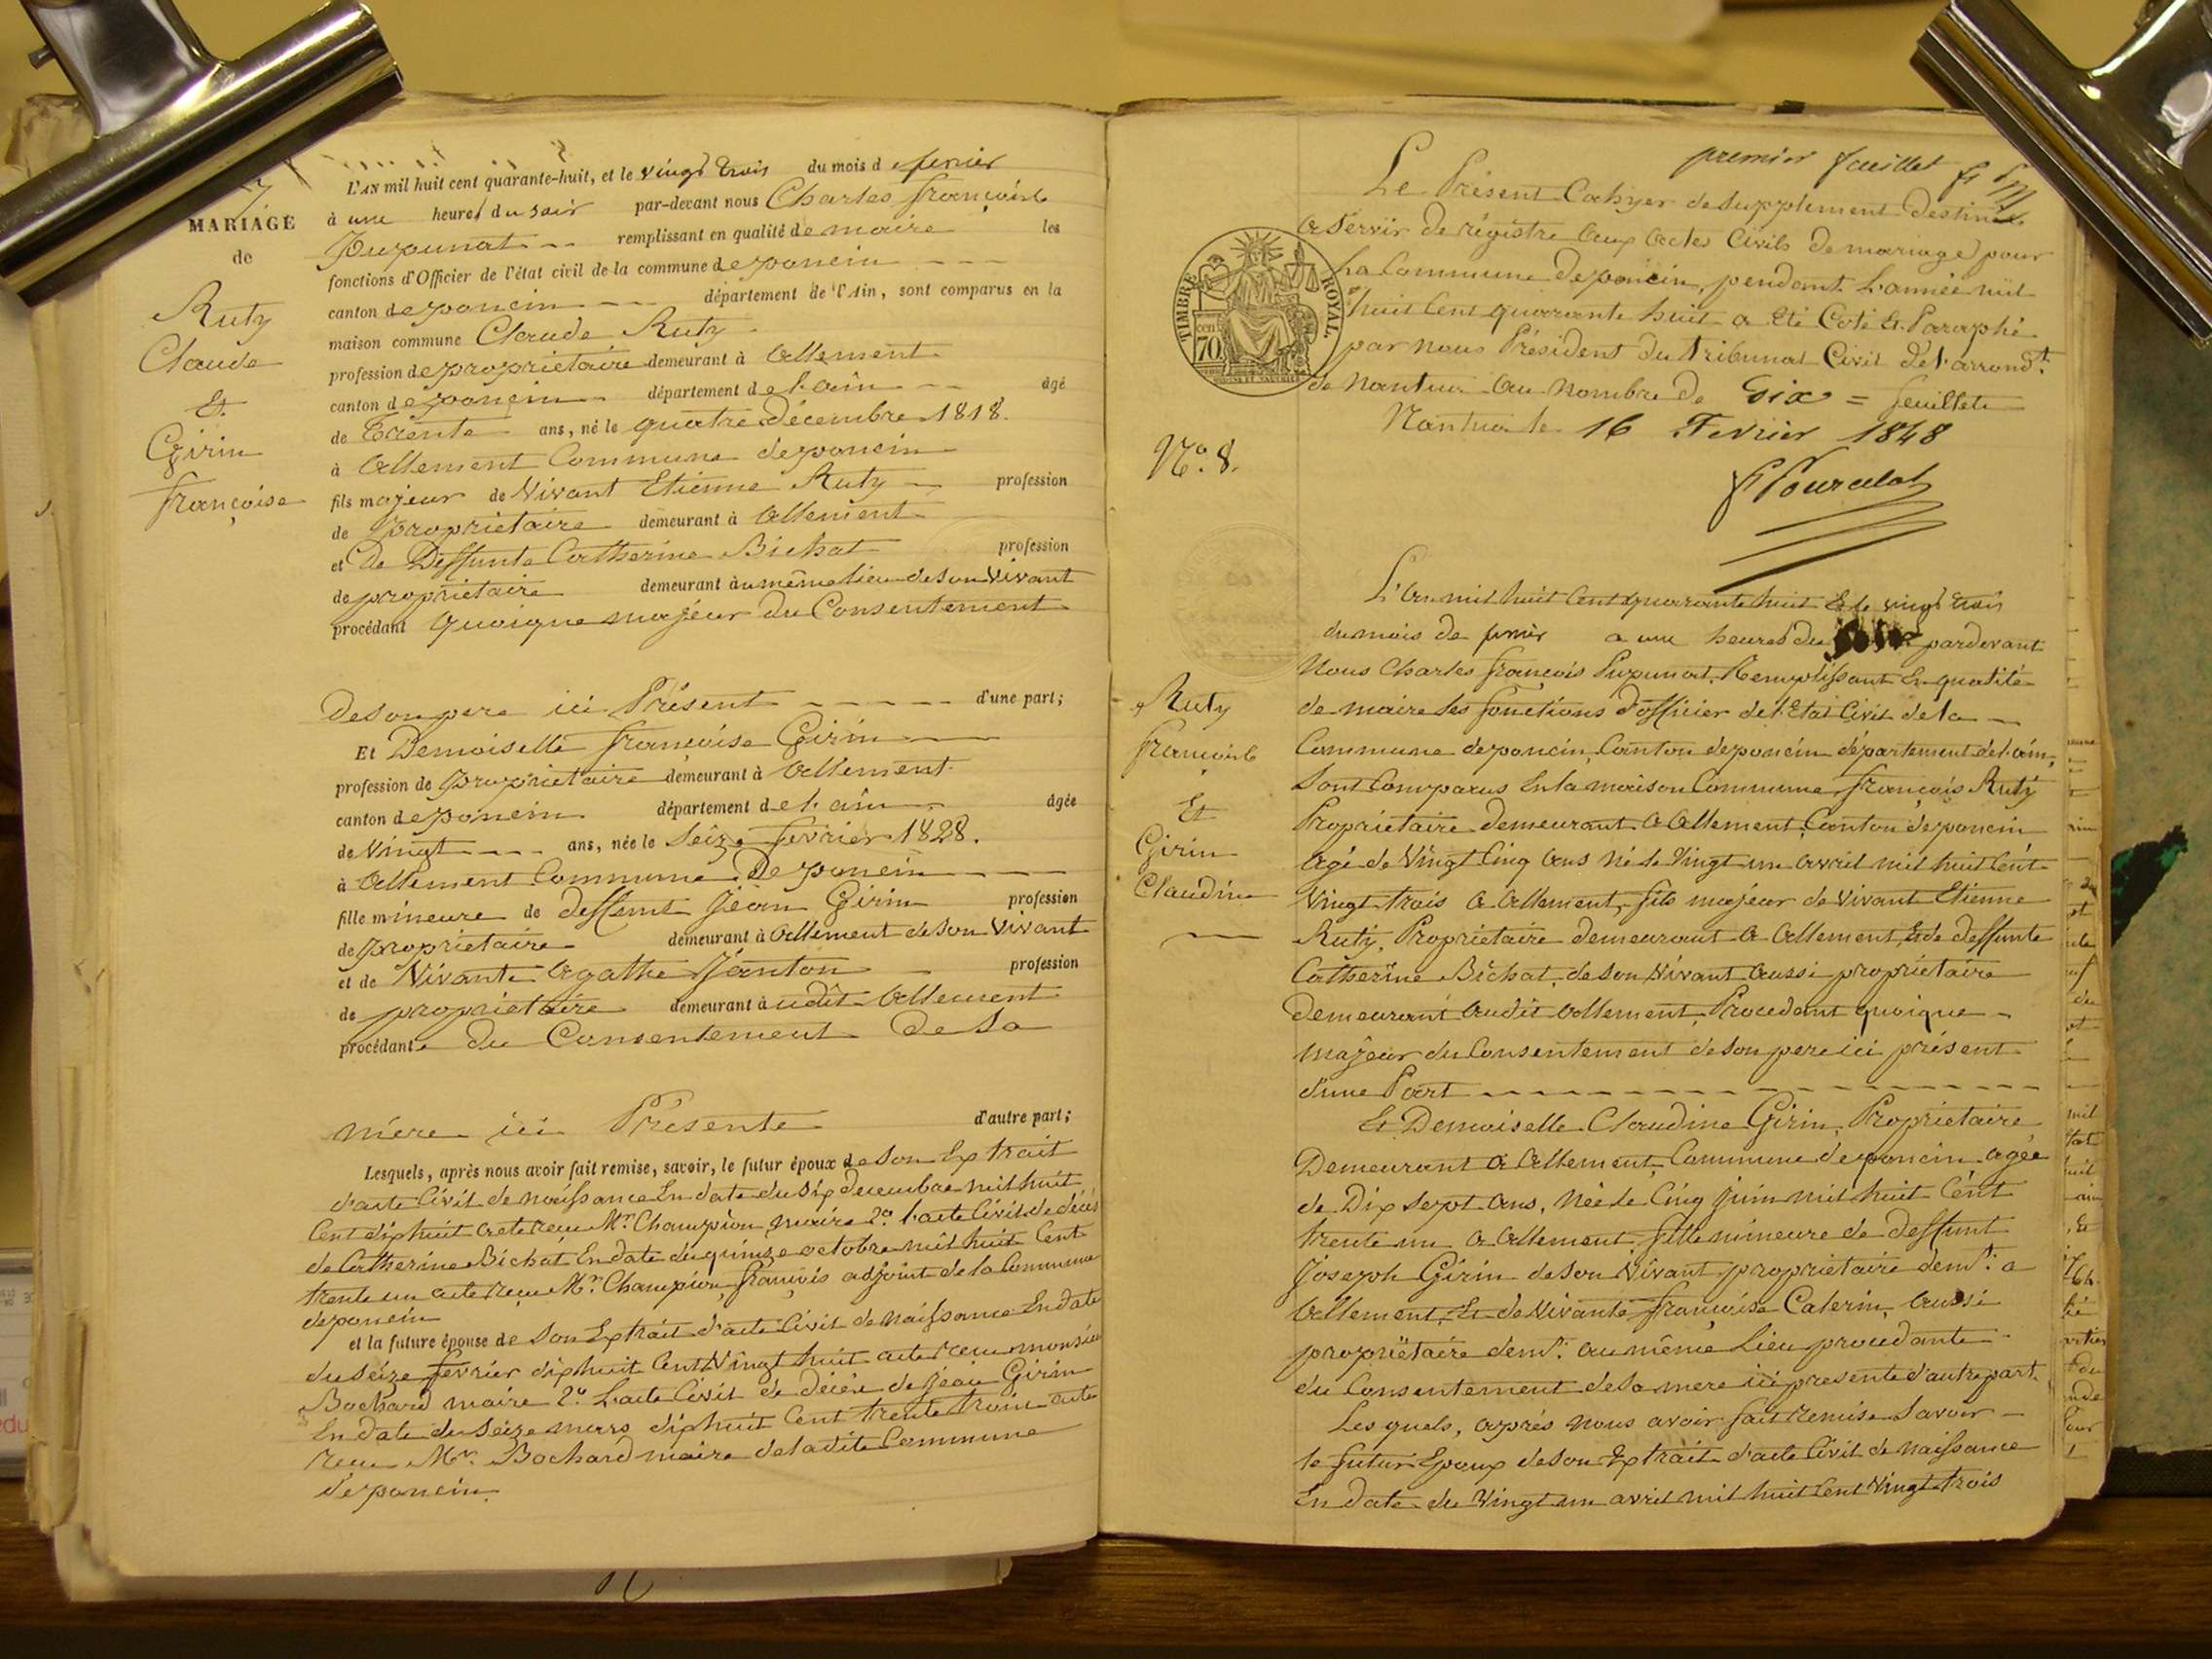 7
MARIAGE
de
Ruty
Claude
Et
Girin
françoise
L'AN mil huit cent quarante-huit, et le vingt trois du mois d fevrier
à une heures du soir par-devant nous Charles françois
Pupunat remplissant en qualité de maire les
fonctions d'Officier de l'état civil de la commune de poncin
canton de poncin département de l'Ain, sont comparus en la
maison commune Claude Ruty
profession de propriétaire demeurant à Allement
canton de poncin département de l'ain âgé
de Trente ans, né le quatre décembre 1818.
à Allement Commune de poncin
fils majeur de Vivant Etienne Ruty profession
de Propriétaire demeurant à Allement
et De Deffunte Catherine Bichat profession
de propriétaire demeurant au même lieu de son Vivant
procédant quoique majeur du Consentement
de son pere ici Présent d'une part;
Et Demoiselle françoise Girin
profession de propriétaire demeurant à Allement
canton de poncin département de l'ain âgée
de Vingt ans, née le Seize fevrier 1828.
à Allement Commune De poncin
fille mineure de deffunt Jean Girin profession
de propriétaire demeurant à Allement de son Vivant
et de Vivante Agathe Janton profession
de propriétaire demeurant à udit Allement
procédante du Consentement De Sa
mère ici Présente d'autre part;
Lesquels, après nous avoir fait remise, savoir, le futur époux de son Extrait
d'acte Civil de naissance En date du six decembre mil huit
Cent dix huit acte reçu Mr. Champion maire 2° l'acte Civil de décès
de Catherine Bichat En date du quinze octobre mil huit Cent
trente un acte reçu Mr. Champion françois adjoint de la Commune
de poncin
et la future épouse de Son Extrait d'acte Civil de naissance En date
du seize fevrier dix huit Cent Vingt huit acte reçu monsieur
Bochard maire 2° L'acte Civil de décès de Jean Girin
En date du Seize mars dix huit Cent trente trois acte
reçu Mr. Bochard maire de la dite Commune
de poncin
premier feuillet
Le Présent Cahyer de supplement Destiné
a servir de régistre aux actes Civils de mariage pour
La Commune de poncin, pendant L'année mil
huit Cent quarante huit a Eté Coté & Paraphé
par nous Président du tribunal Civil de l'arrondt.
de nantua au nombre de Six = feuillets
Nantua le 16 Fevrier 1848
TIMBRE ROYAL
cent. 70
N°. 8.
Ruty
françois
Et
Girin
Claudine
L'an mil huit Cent quarante huit & le vingt trois
du mois de fevrier a une heures du soir pardevant
Nous Charles françois Pupunat, Remplissant En qualité
de maire les fonctions d'officier de l'Etat Civil de la
Commune de poncin, Canton de poncin département de l'ain,
Sont Comparus En la maison Commune françois Ruty
Propriétaire demeurant a Allement, Canton de poncin
agé de Vingt Cinq ans né le Vingt un avril mil huit Cent
Vingt trois a Allement, fils majeur de Vivant Etienne
Ruty, Propriétaire demeurant a Allement, & de deffunte
Catherine Bichat, de son Vivant aussi propriétaire
demeurant audit Allement, Procedant quoique
majeur du Consentement de son pere ici présent
d'une Part
Et Demoiselle Claudine Girin, Propriétaire
Demeurant a Allement, Commune de poncin, agée
de Dix sept ans, née le Cinq juin mil huit Cent
trente un a Allement, fille mineure de deffunt
Joseph Girin de son Vivant propriétaire demt. a
Allement, Et de Vivante françoise Caterin, aussi
propriétaire demt. au même Lieu procedante
du Consentement de sa mere ici presente d'autre part.
Les quels, après nous avoir fait remise Savoir
le futur Epoux de son Extrait d'acte Civil de naissance
En date du Vingt un avril mil huit Cent Vingt trois